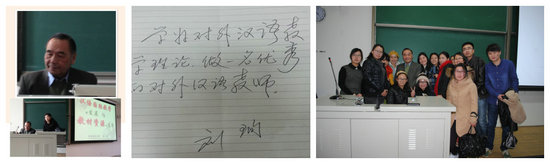 学好对外汉语教
学理论，做一名优秀
的对外汉语教师。
刘珣